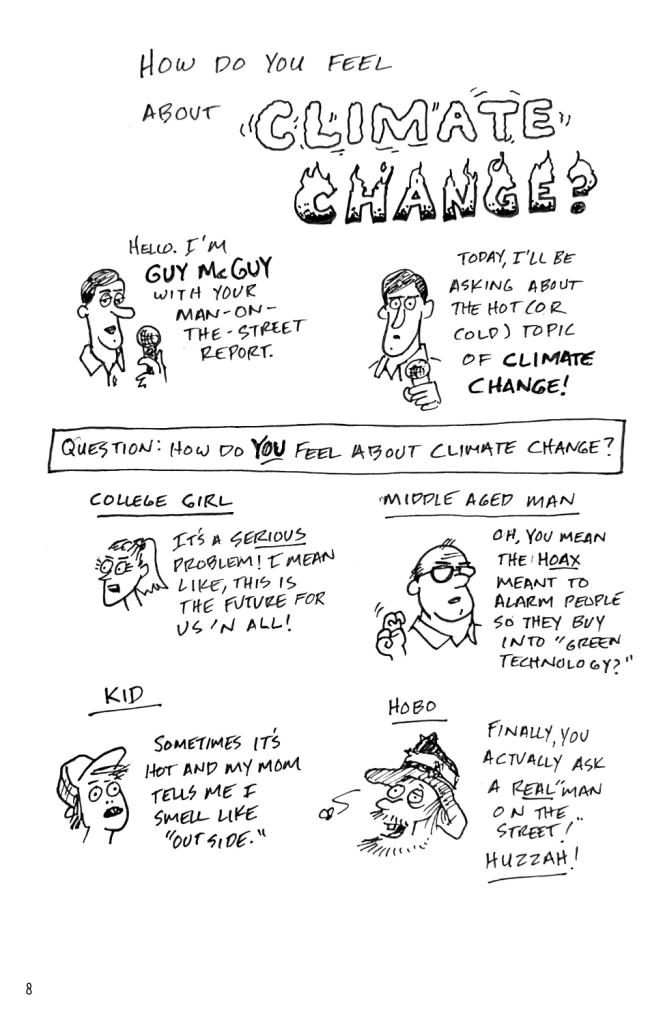 HOW DO YOU FEEL
ABOUT CLIMATE
CHANGE?
HELLO. I'M
GUY McGUY
WITH YOUR
MAN-ON-
THE-STREET
REPORT.
TODAY, I'LL BE
ASKING ABOUT
THE HOT (OR
COLD) TOPIC
OF CLIMATE
CHANGE!
QUESTION: HOW DO YOU FEEL ABOUT CLIMATE CHANGE?
COLLEGE GIRL
IT'S A SERIOUS
PROBLEM! I MEAN
LIKE, THIS IS
THE FUTURE FOR
US 'N ALL!
MIDDLE AGED MAN
OH, YOU MEAN
THE HOAX
MEANT TO
ALARM PEOPLE
SO THEY BUY
INTO "GREEN
TECHNOLOGY?"
KID
SOMETIMES IT'S
HOT AND MY MOM
TELLS ME I
SMELL LIKE
"OUTSIDE."
HOBO
FINALLY, YOU
ACTUALLY ASK
A REAL "MAN
ON THE
STREET!"
HUZZAH!
8